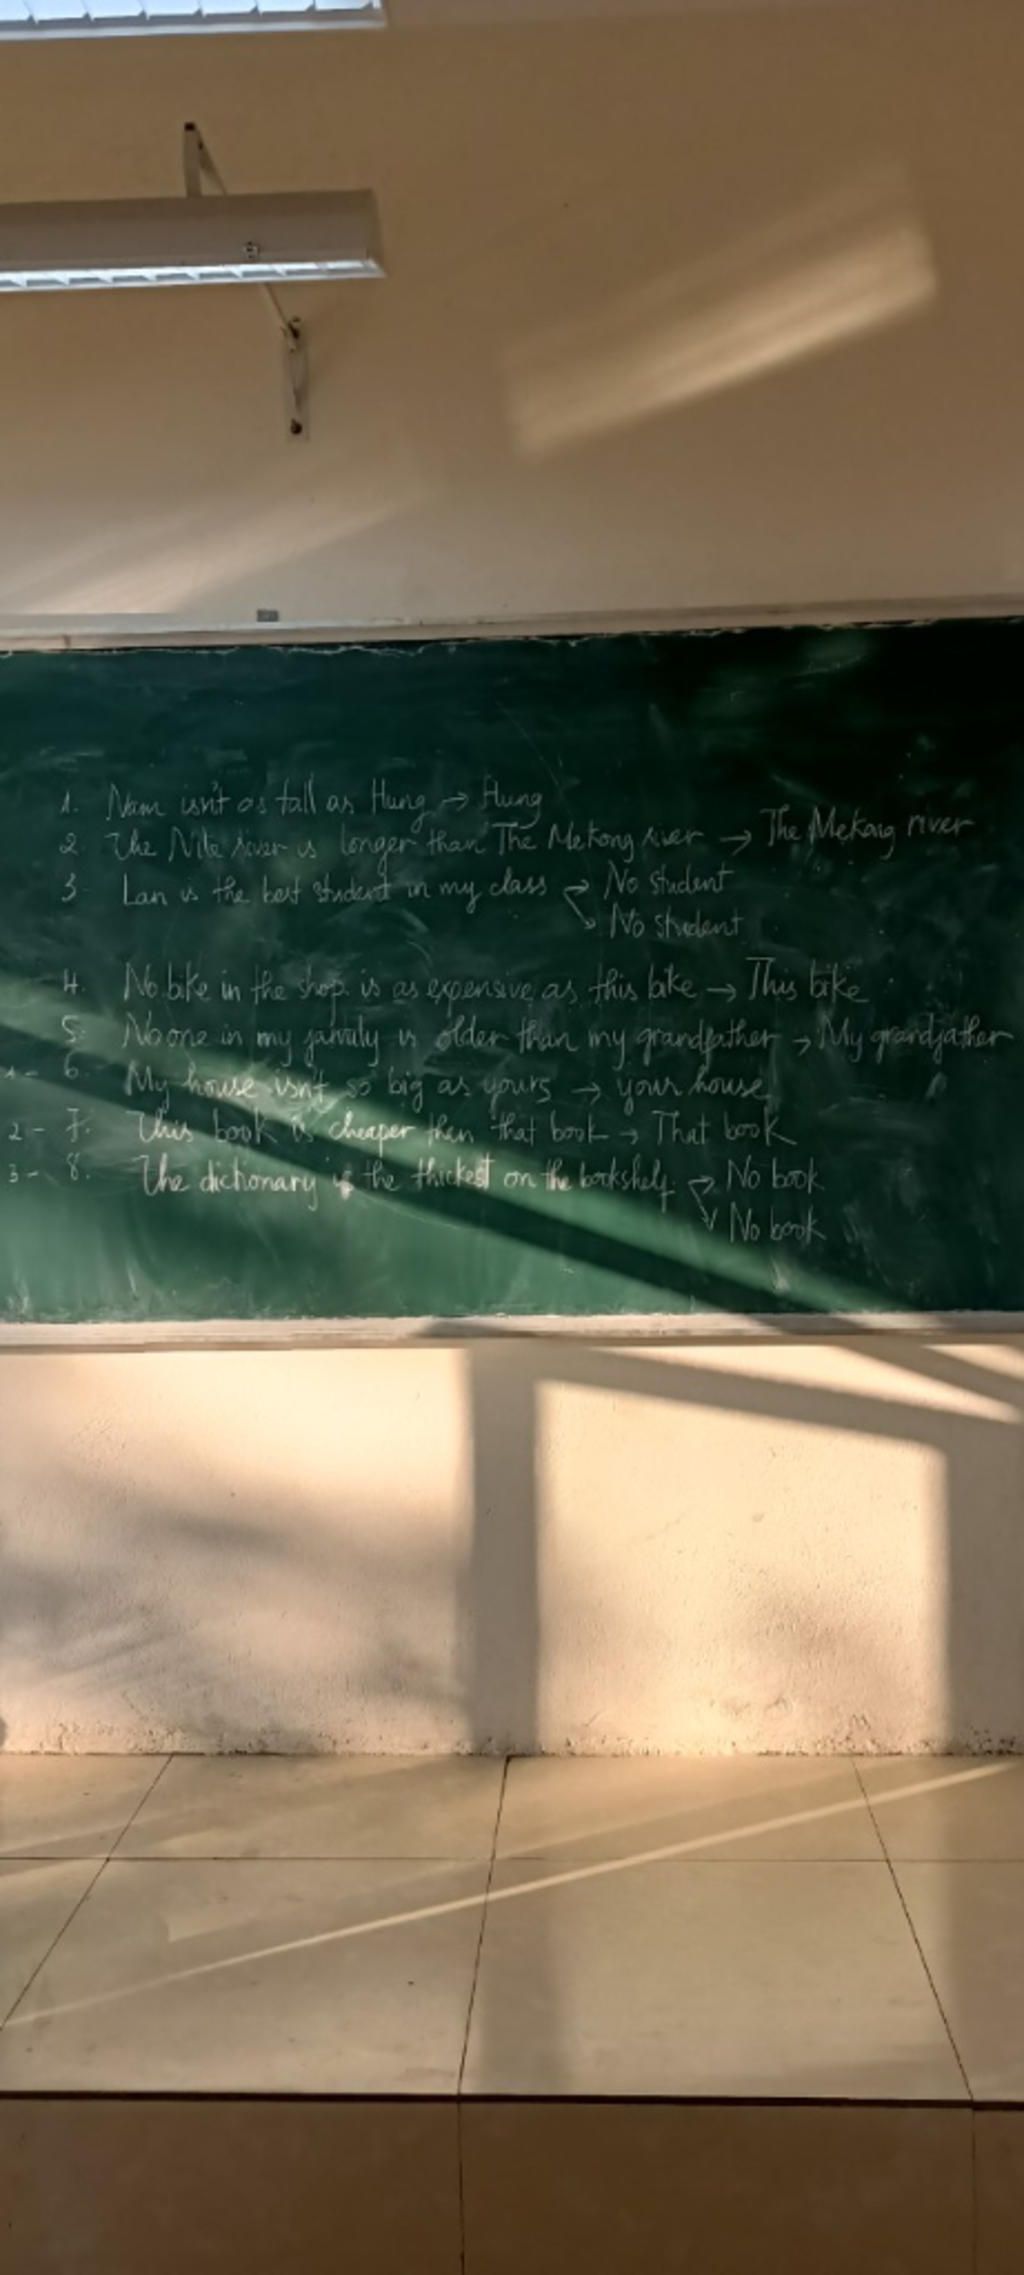 1. Nam isn't as tall as Hung → Hung
2. The Nile river is longer than The Mekong river → The Mekong river
3. Lan is the best student in my class → No student
→ No student
4. No bike in the shop is as expensive as this bike → This bike
5. No one in my family is older than my grandfather → My grandfather
1 - 6. My house isn't so big as yours → your house
2 - 7. This book is cheaper than that book → That book
3 - 8. The dichonary is the thickest on the bookshelf. → No book
→ No book